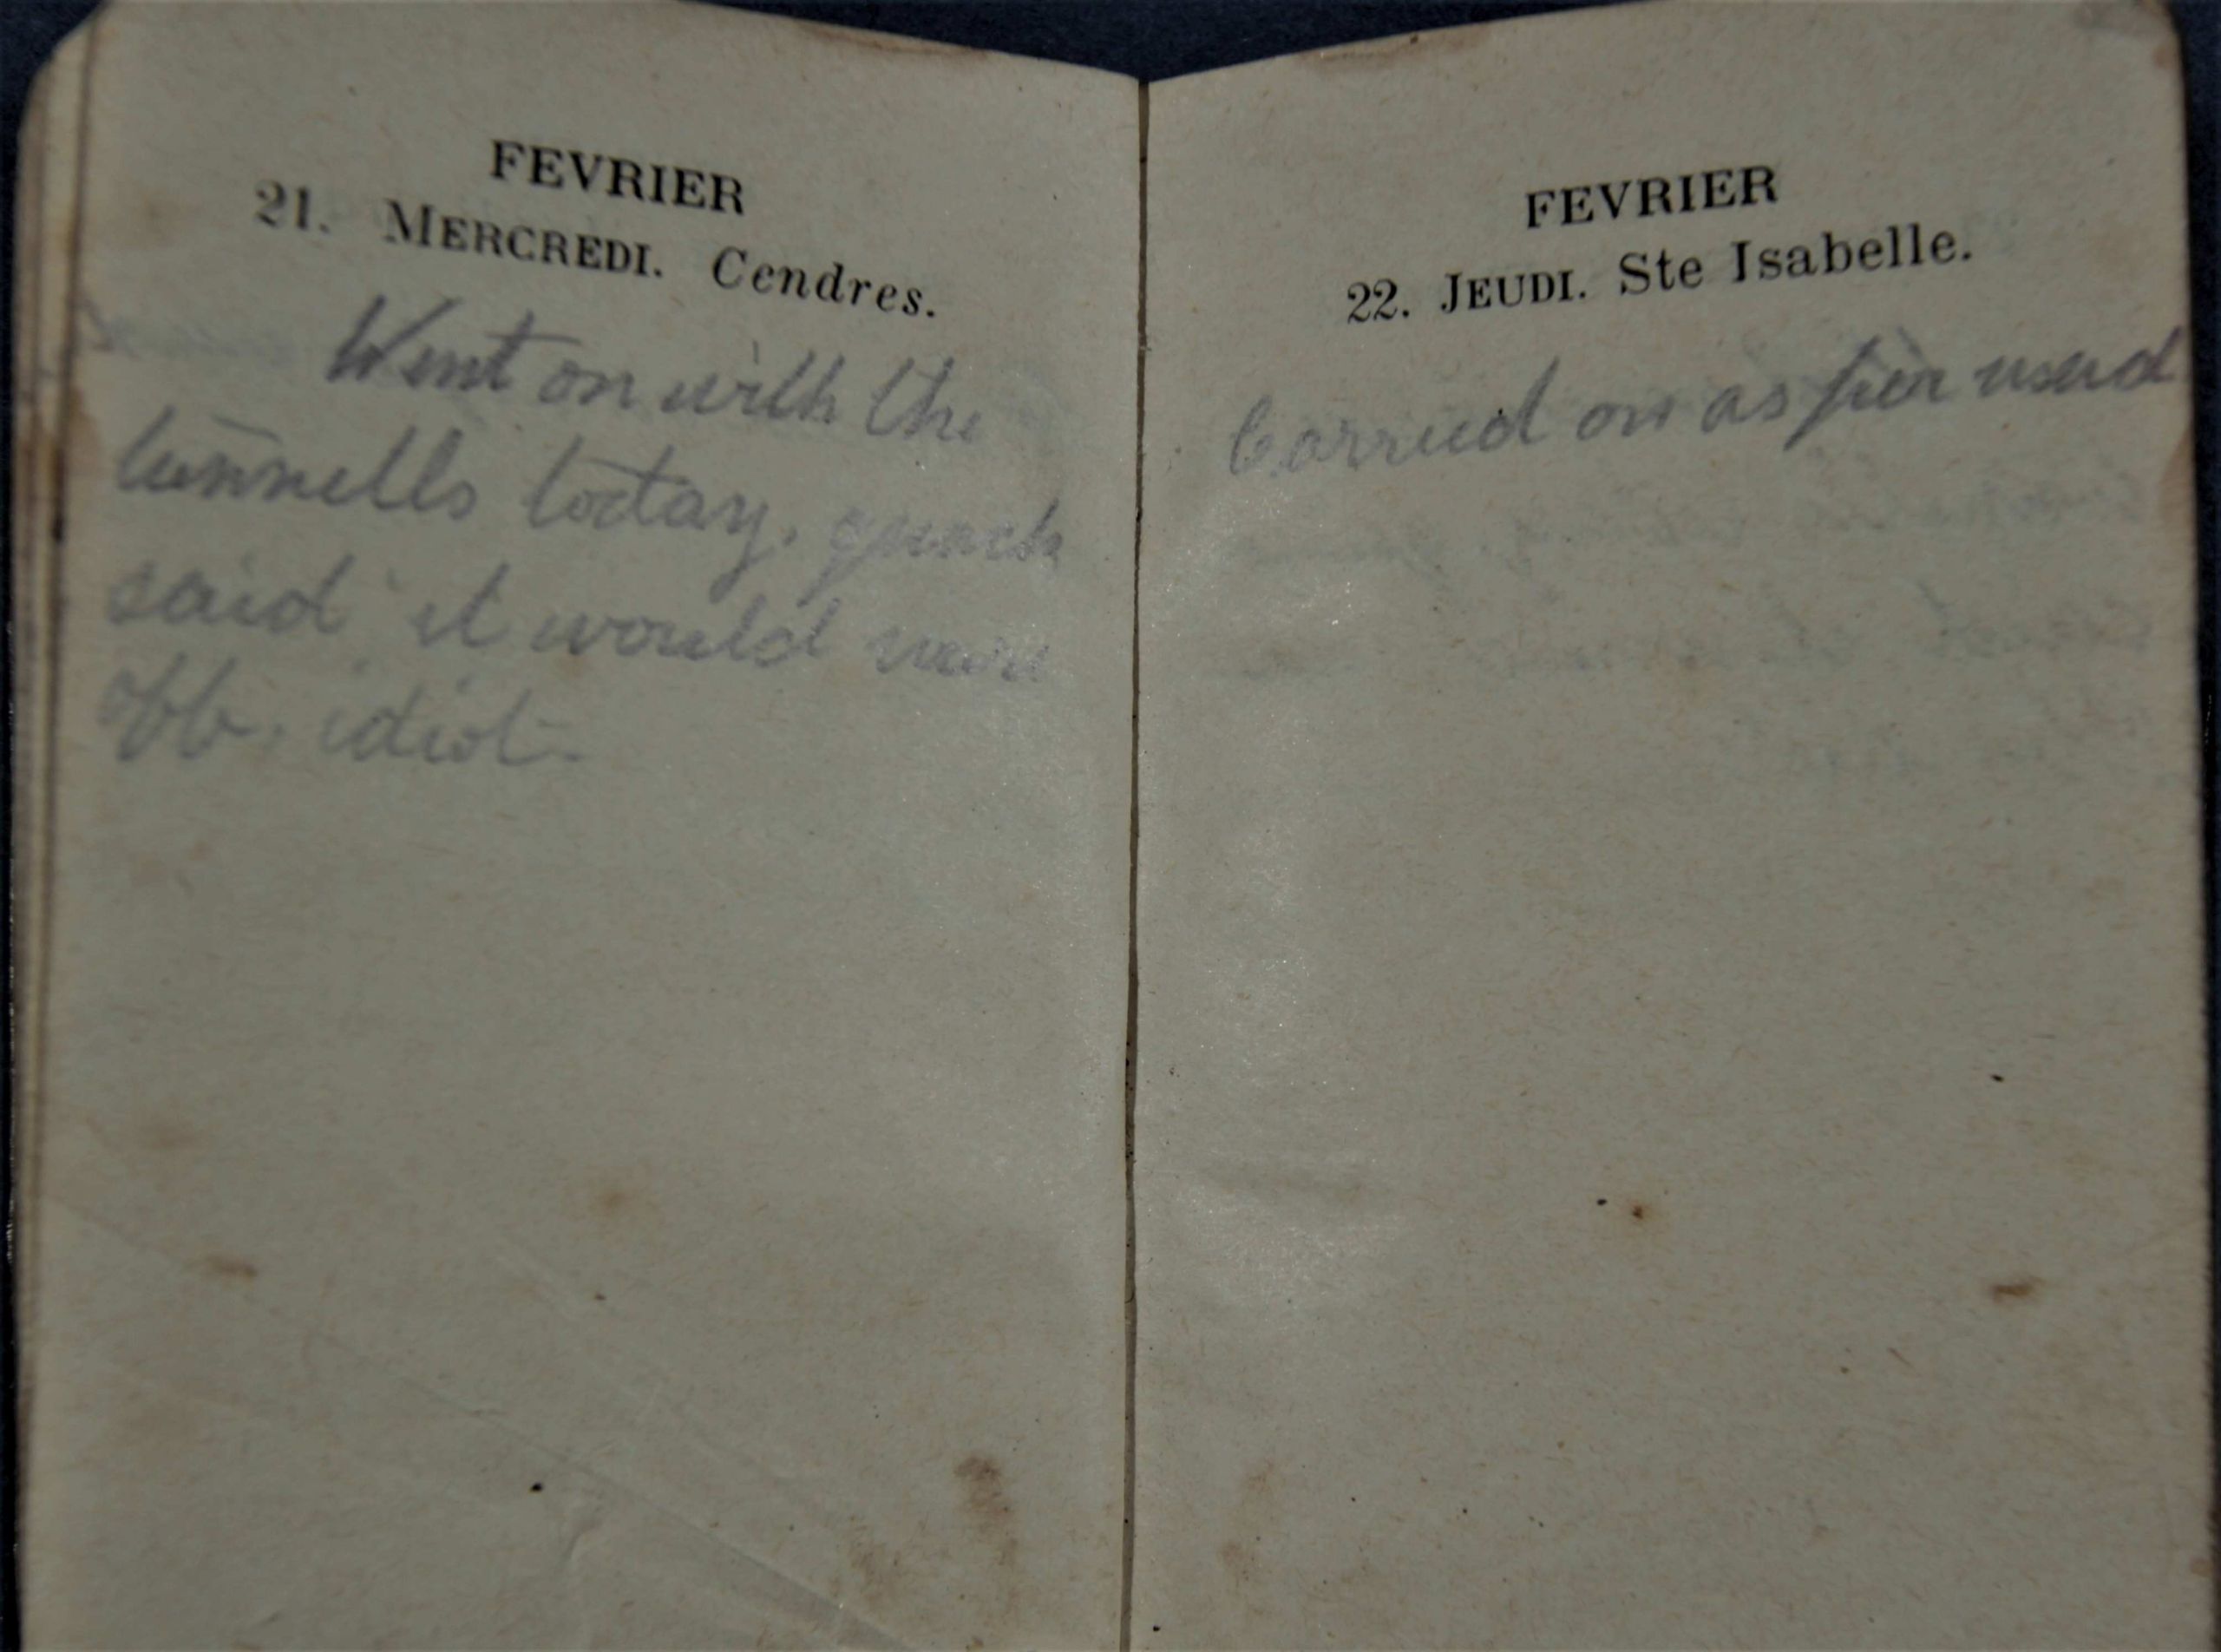 FEVRIER
21. MERCREDI. Cendres.
Went on with the
tunnells today. quack
said it would wear
off. idiot
FEVRIER
22. JEUDI. Ste Isabelle.
Carried on as per usual